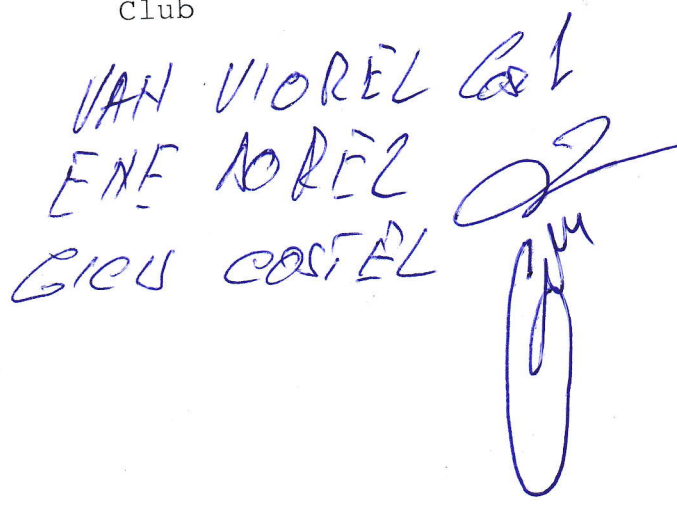 Club
VAN VIOREL
ENE DOREL
GICU COSTEL